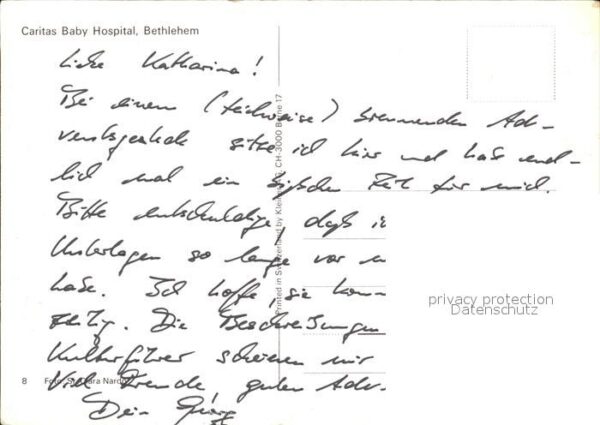 Caritas Baby Hospital, Bethlehem
Liebe Katharina!
Bei einem (teilweise) brennenden Ad-
ventsgestock sitze ich hier und habe end-
lich mal ein bißchen Zeit für mich.
Bitte entschuldige, daß ic
Unterlagen so lange vor m
habe. Ich hoffe sie kom-
zeitig. Die Beschreibungen
Kulturführer scheinen mir
Viel Freude, guten Adv-
Dein Georg
Printed in Switzerland by CH-3000 Berne 17
8 Foto: Sr. Clara Nardo
privacy protection
Datenschutz